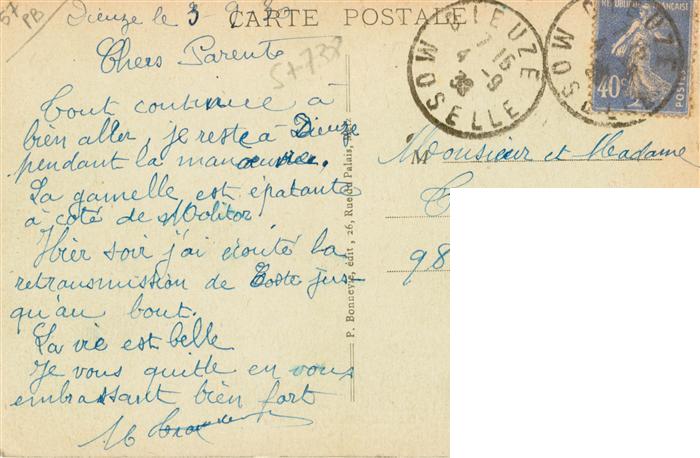 57
PB
Dieuze le 3 9 30
CARTE POSTALE
57-738
Chers Parents
Tout continue à
bien aller, je reste à Dieuze
pendant la manœuvre.
La gamelle est épatante
à côté de Molitor.
Hier soir j'ai écouté la
retransmission de Coste jus-
qu'au bout.
La vie est belle
Je vous quitte en vous
embrassant bien fort
P. Bonnevie, édit., 26, Rue du Palais,
DIEUZE
MOSELLE
DIEUZE
MOSELLE
REPUBLIQUE FRANÇAISE
40c
POSTES
M Monsieur et Madame
98